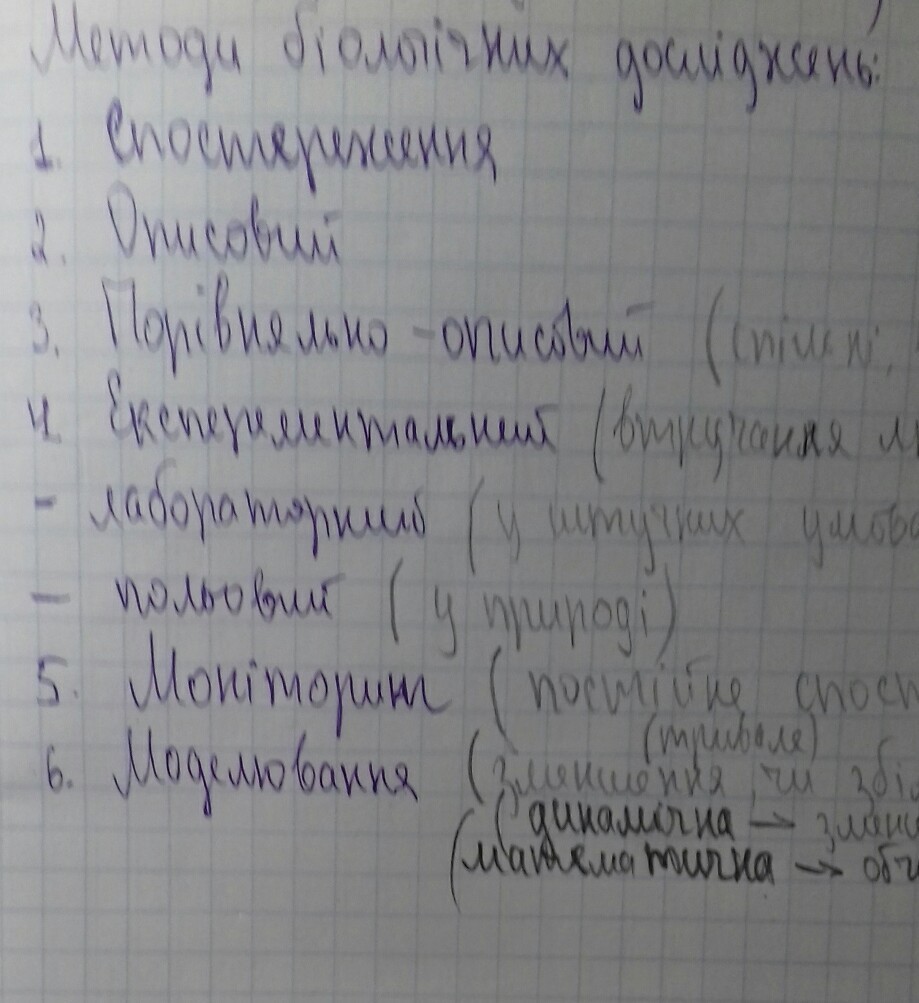 Методи біологічних досліджень:
1. Спостереження
2. Описовий
3. Порівняльно-описовий (спільні,
4. Експериментальний (втручання
- лабораторний (у штучних умова
- польовий (у природі)
5. Моніторинг (постійне спост
(тривале)
6. Моделювання (зменшення чи збі
(динамічна → змен
(математична → обч